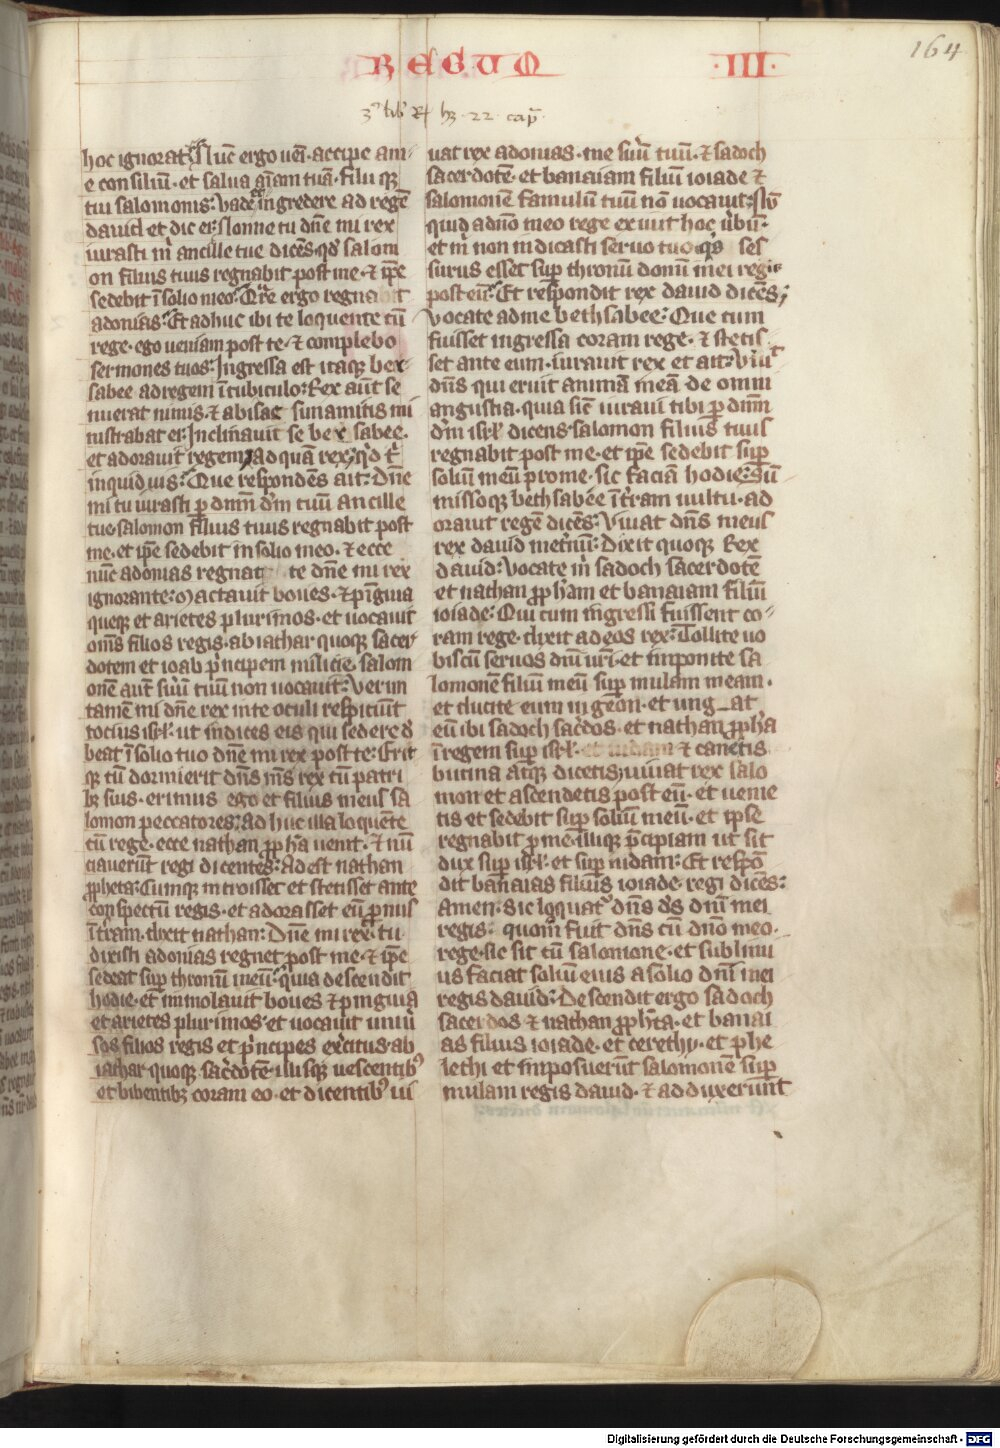 REGUM III
164
3us lib' R hz 22 cap
hoc ignorat. Nūc ergo ueni. accipe a me
e consiliū. et salua aīam tuā. filii qȝ
tui salomonis: Vade ingredere ad regē
dauid et dic ei: Nonne tu dn̄e mi rex
iurasti m̄ ancille tue dicēs. qđ salom
on filius tuus regnabit post me. ⁊ ip̄e
sedebit ī solio meo: Qr̄e ergo regnabit
adonias: Et adhuc ibi te loquente cū
rege. ego ueniam post te. ⁊ complebo
sermones tuos: Ingressa est itaqȝ bex
sabee ad regem ī cubiculo: Rex aut̄ se
nuerat nimis. ⁊ abisac sunamitis mi
nistrabat ei: Inclinauit se bex sabee.
et adorauit regem; Ad quā rex; qđ t̄
inquid uis: Que respondēs ait: Dn̄e
mi tu iurasti ꝑ dnm̄ dm̄ tuū ancille
tue. salomon filius tuus regnabit post
me. et ip̄e sedebit in solio meo. ⁊ ecce
nūc adonias regnat te dn̄e mi rex
ignorante: Mactauit boues. ⁊ pīguia
queqȝ et arietes plurimos. et uocauit
om̄s filios regis. abiathar quoqȝ sacer
dotem et ioab pͥncipem milicie. salom
onē aut̄ suū tuū non uocauit: Verūn
tamē mi dn̄e rex in te oculi respiciūt
tocius isrl̄. ut indices eis qui sedere đ
beat ī solio tuo dn̄e mi rex post te: Erit
qȝ cū dormierit dn̄s m̄s rex cū patri
bȝ suis. erimus ego et filius meus sa
lomon peccatores: Ad huc illa loquēte
cū rege. ecce nathan ꝓpha uenit. ⁊ nū
ciauerūt regi dicentes: Adest nathan
ꝓpheta: Cumqȝ introisset et stetisset ante
conspectū regis. et adorasset eū ꝓnus
ī tram. dixit nathan: Dn̄e mi rex. tu
dixisti adonias regnet post me. ⁊ ip̄e
sedeat suꝑ thronū meū: quia descendit
hodie. et immolauit boues ⁊ pinguia
et arietes plurimos. et uocauit uniu̅
sos filios regis et pͥncipes exͨitus. ab
iathar quoqȝ sac̄dotē. illisqȝ uescentibꝰ
et bibentibȝ coram eo. et dicentibꝰ ui
uat rex adonias. me suū tuū. ⁊ sadoch
sacerdotē. et banaiam filiū ioiade ⁊
salomonē famulū tuū nō uocauit: Nū
quid a dn̄o meo rege exiuit hoc ūbū.
et m̄ non indicasti seruo tuo qis ses
surus esset suꝑ thronū domī mei regis
post eū: Et respondit rex dauid dicēs;
Vocate ad me bethsabee: Que cum
fuisset ingressa coram rege. ⁊ stetis
set ante eum. iurauit rex et ait: Viuit
dn̄s qui eruit animā meā de omni
angustia. quia sic̄ iuraui tibi ꝑ dnm̄
dm̄ isrl̄ dicens. salomon filius tuus
regnabit post me. et ip̄e sedebit suꝑ
soliū meū pro me. sic faciā hodie: Sū
missoqȝ bethsabee ī tr̄am uultu. ad
orauit regē dicēs: Viuat dn̄s meus
rex dauid ineͭnū: Dixit quoqȝ Rex
dauid: Vocate m̄ sadoch sacerdotē
et nathan ꝓpham et banaiam filiū
ioiade: Qui cum ingressi fuissent co
ram rege. dixit ad eos rex: Tollite uo
biscū seruos dnī urī. et imponite sa
lomonē filiū meū suꝑ mulam meam.
et ducite eum in geon. et ung_at
eū ibi sadoch sac̄dos. et nathan ꝓpha
ī regem suꝑ isrl̄. et iudam ⁊ canetis
bucina atqȝ dicetis; uiuat rex salo
mon et ascendetis post eū. et uenie
tis et sedebit suꝑ soliū meū. et ipse
regnabit ꝓ me. illiqȝ pͨipiam ut sit
dux suꝑ isrl̄. et suꝑ iudam: Et respō
dit banaias filius ioiade. regi dicēs:
Amen. sic loquatᷣ dn̄s ds̄ dnī mei
regis: quom̄ fuit dn̄s cū dn̄o meo.
rege. sic sit cū salomone. et sublimi
us faciat soliū eius a solio dnī mei
regis dauid: Descendit ergo sadoch
sacerdos ⁊ nathan ꝓph̄ta. et banai
as filius ioiade. et cerethi. et phe
lethi et imposuerūt salomonē suꝑ
mulam regis dauid. ⁊ adduxerunt
Digitalisierung gefördert durch die Deutsche Forschungsgemeinschaft - DFG